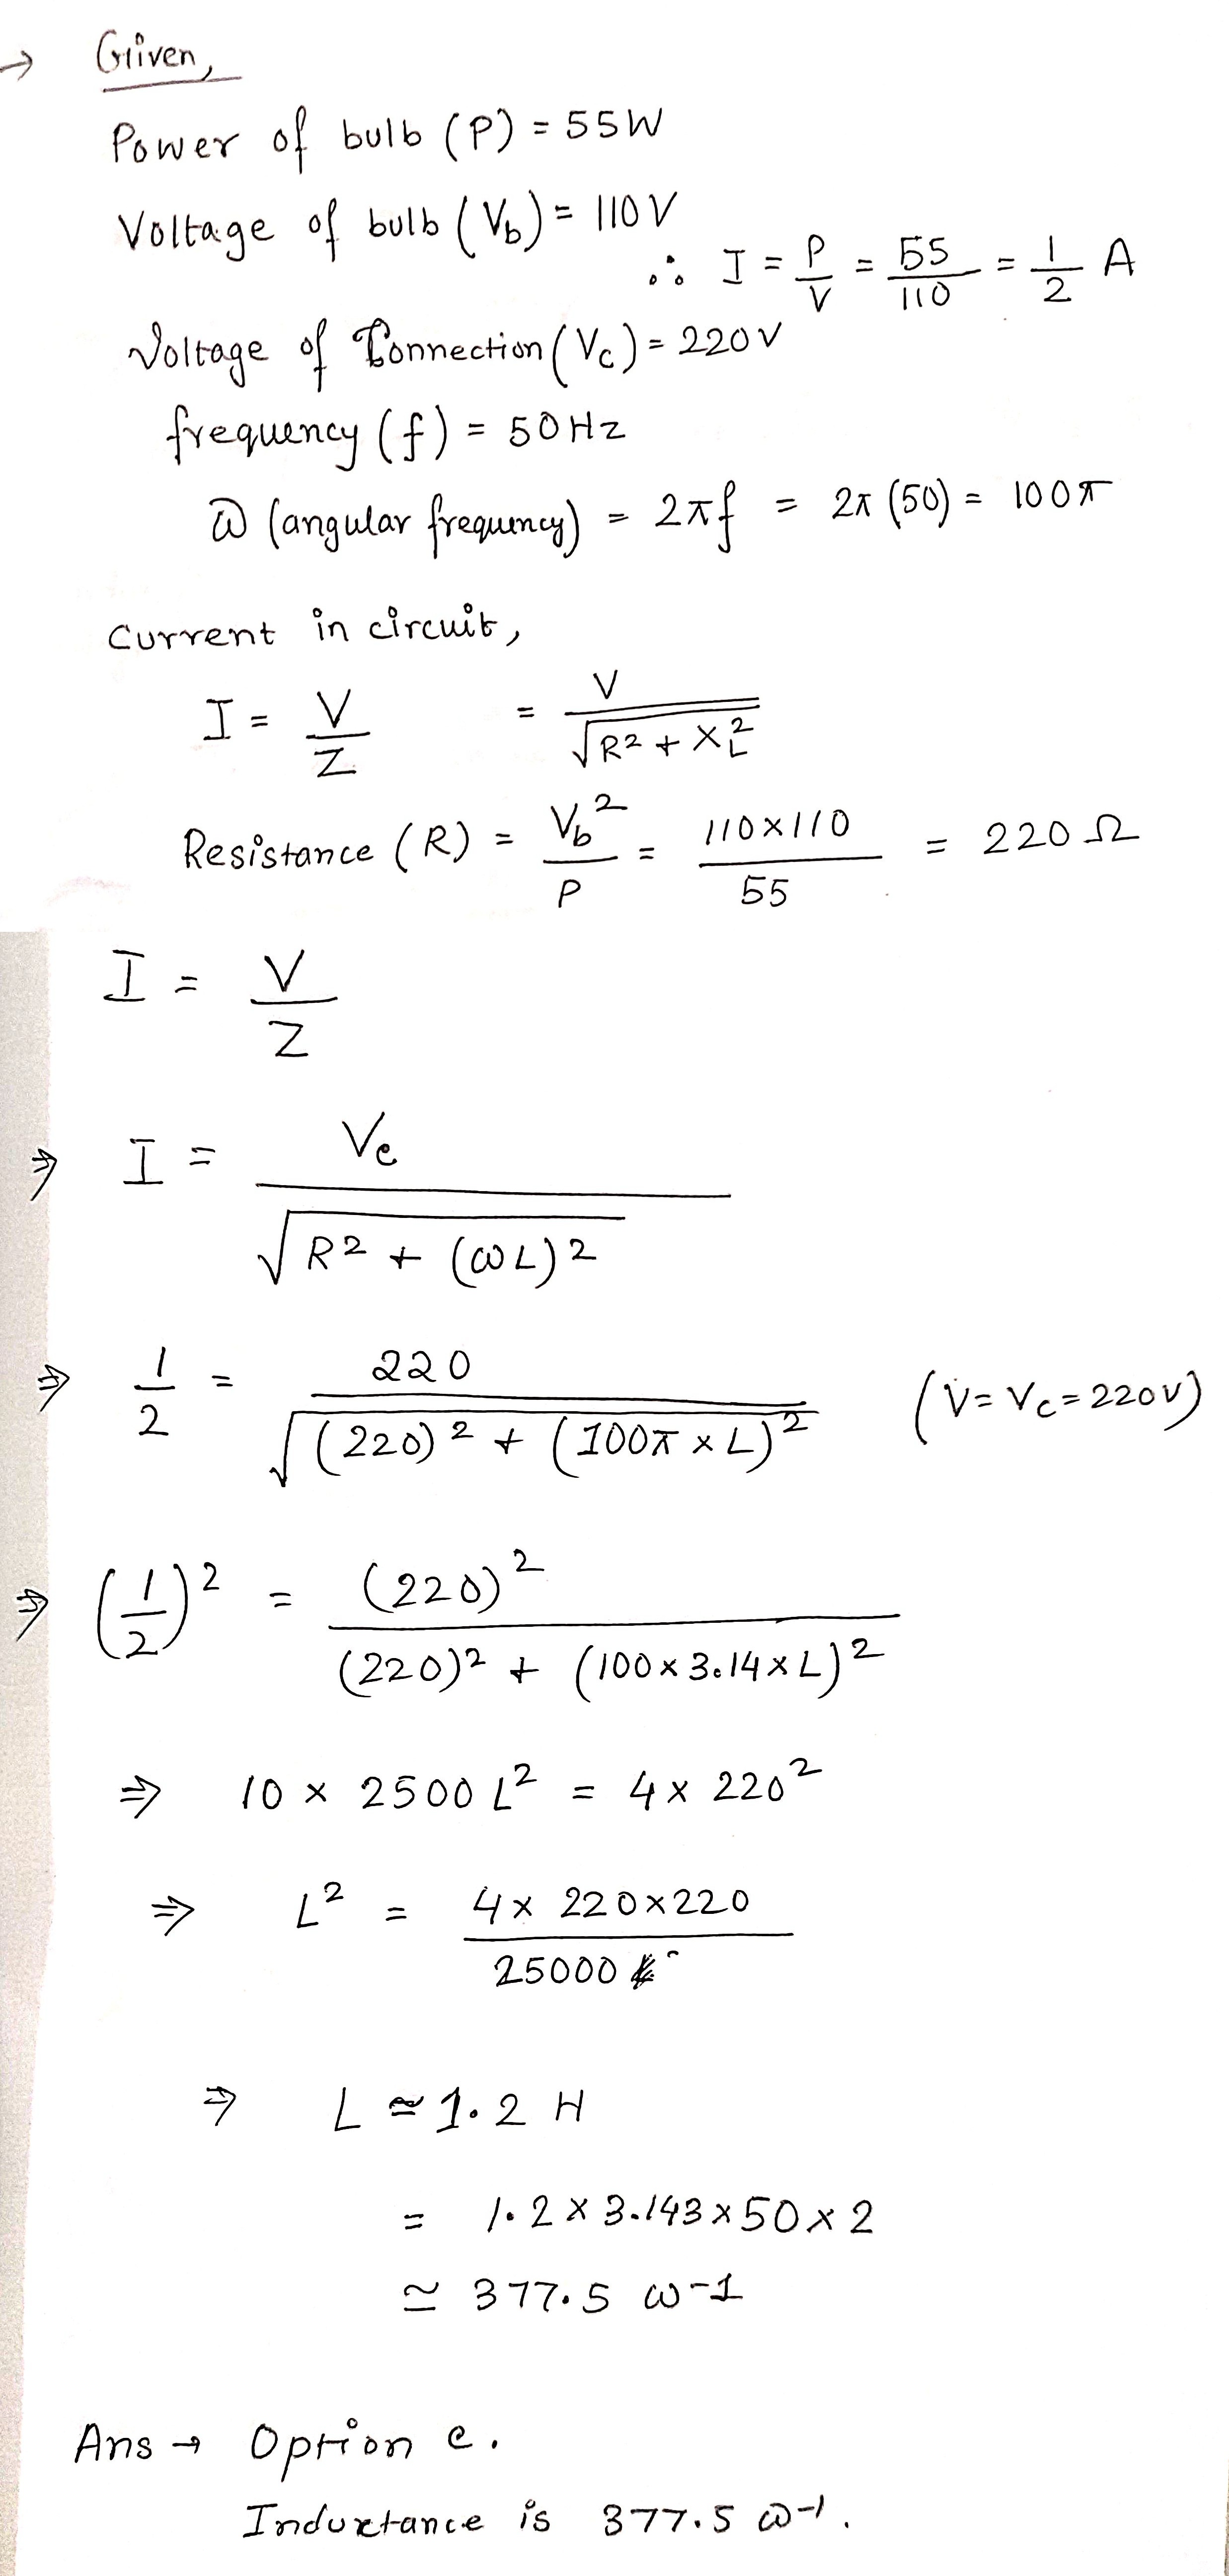 → Given,
Power of bulb (P) = 55W
Voltage of bulb (V_b) = 110 V
∴ I = P/V = 55/110 = 1/2 A
Voltage of Connection (V_c) = 220 V
frequency (f) = 50 Hz
ω (angular frequency) = 2πf = 2π (50) = 100π
Current in circuit,
I = V/Z = V/√(R² + X_L²)
Resistance (R) = V_b²/P = 110×110/55 = 220 Ω
I = V/Z
⇒ I = V_c/√(R² + (ωL)²)
⇒ 1/2 = 220/√((220)² + (100π × L)²) (V = V_c = 220V)
⇒ (1/2)² = (220)²/((220)² + (100 × 3.14 × L)²)
⇒ 10 × 2500 L² = 4 × 220²
⇒ L² = 4 × 220 × 220/25000
⇒ L ≃ 1.2 H
= 1.2 × 3.143 × 50 × 2
≃ 377.5 ω-1
Ans → Option c.
Inductance is 377.5 ω-1.